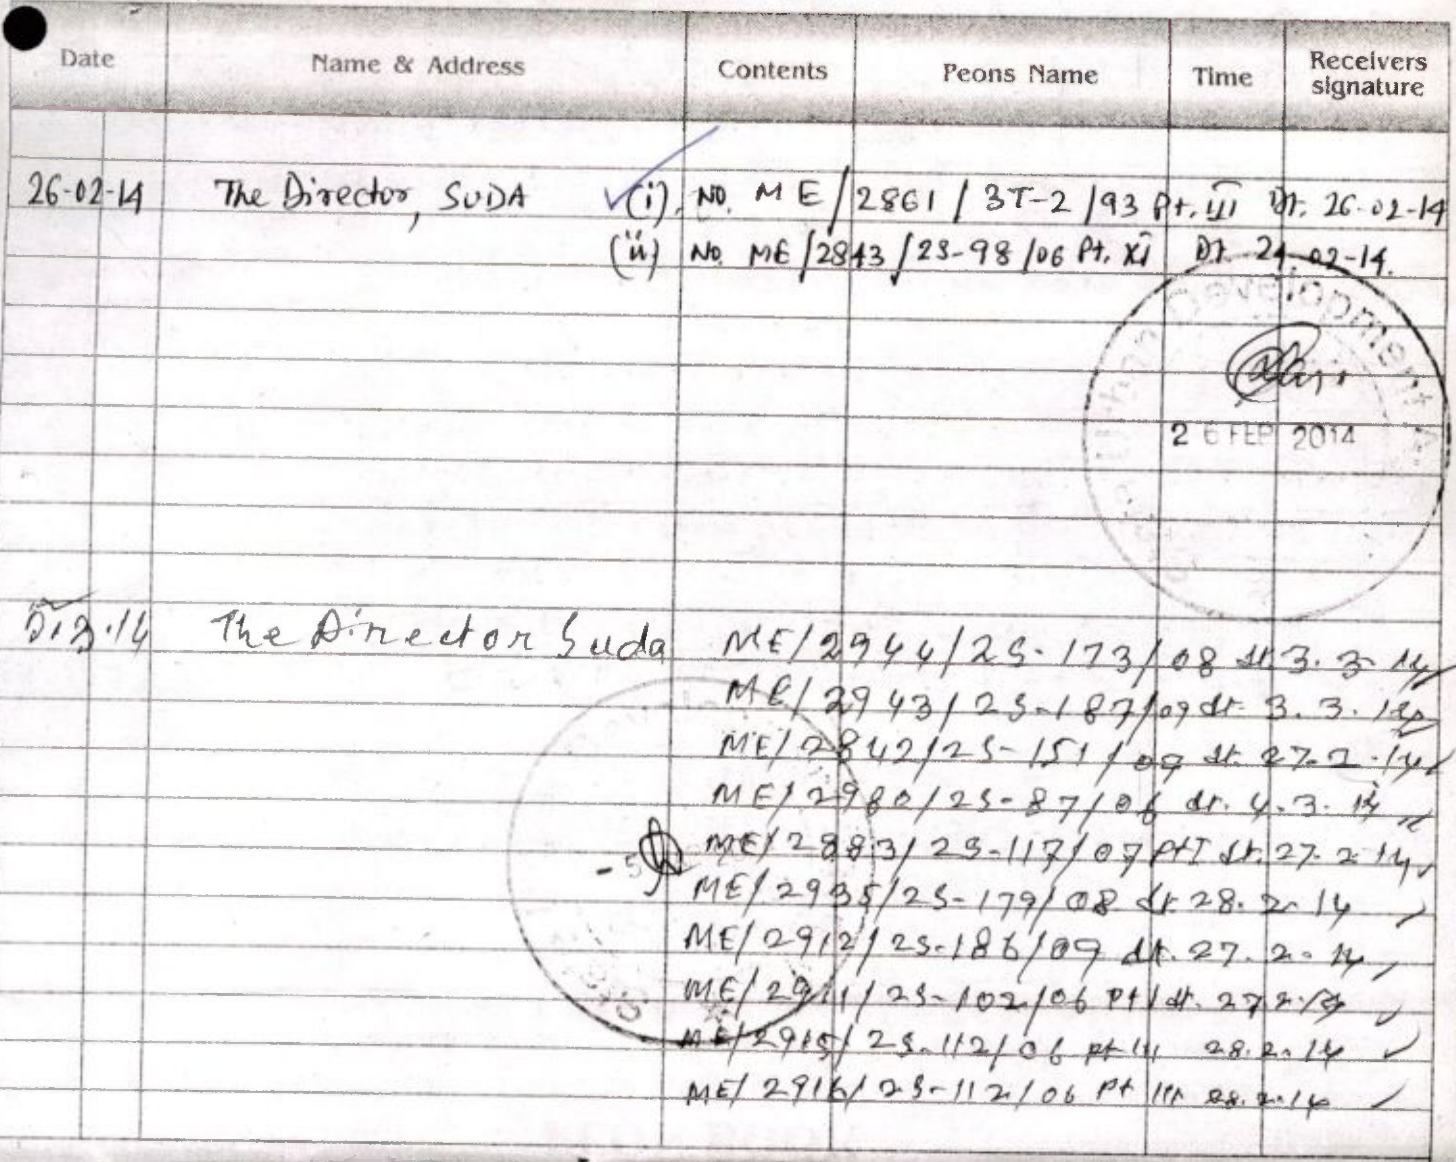 Date Name & Address Contents Peons Name Time Receivers signature
26-02-14 The Director, SUDA (i). No. ME/2861/3T-2/93 Pt. III Dt. 26-02-14
(ii) No. ME/2843/2S-98/06 Pt. XI Dt. 24-02-14.
Urban Development
26 FEB 2014
5.3.14 The Director Suda ME/2944/2S-173/08 dt 3.3.14
ME/2943/2S-187/09 dt. 3.3.14
ME/2842/2S-151/07 dt. 27.2.14
ME/2980/2S-87/06 dt. 4.3.14
ME/2883/2S-117/07 Pt I dt. 27.2.14
ME/2935/2S-179/08 dt 28.2.14
ME/2912/2S-186/09 dt. 27.2.14
ME/2911/2S-102/06 Pt I dt. 27.2.14
ME/2915/2S-112/06 pt III 28.2.14
ME/2916/2S-112/06 Pt III 28.2.14